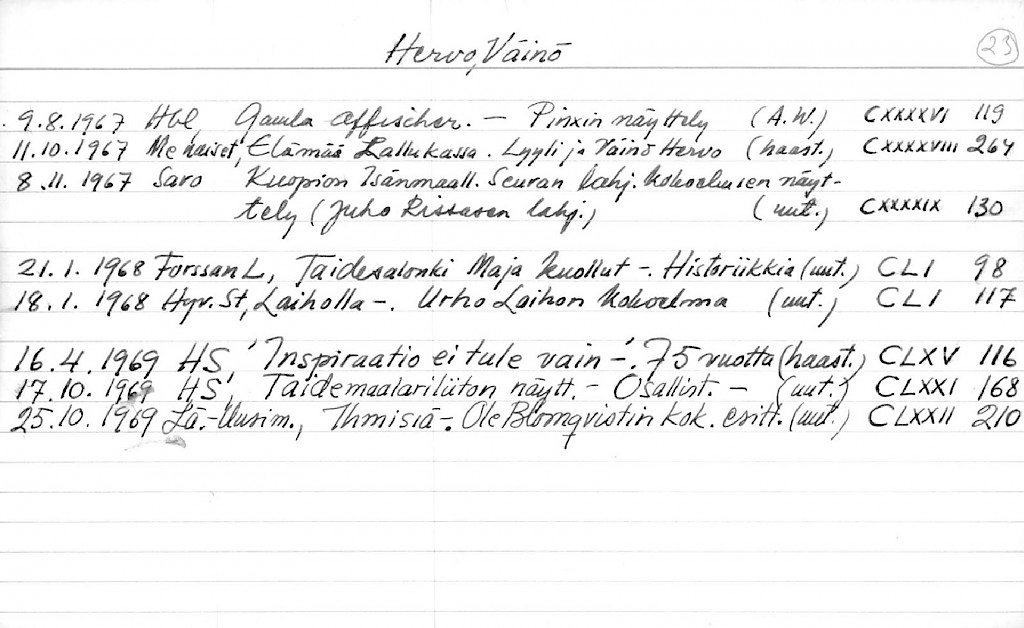 Hervo, Väinö
23
9.8.1967 Hbl, Gamla affischer. – Pinxin näyttely (A.W.) CXXXXVI 119
11.10.1967 Me naiset, Elämää Lallukassa. Lyyli ja Väinö Hervo (haast.) CXXXXVIII 264
8.11.1967 Savo Kuopion Isänmaall. Seuran lahj. kokoelmien näyt-
tely (Juho Rissasen lahj.) (uut.) CXXXXIX 130
21.1.1968 Forssan L, Taidesalonki Maja kuollut –. Historiikkia (uut.) CLI 98
18.1.1968 Hyv. St, Laiholla –. Urho Laihon kokoelma (uut.) CLI 117
16.4.1969 HS, 'Inspiraatio ei tule vain –'. 75 vuotta (haast.) CLXV 116
17.10.1969 HS, Taidemaalariliiton näytt. – Osallist. – (uut.) CLXXI 168
25.10.1969 Lä.-Uusim., Ihmisiä –. Ole Blomqvistin kok. esitt. (uut.) CLXXII 210